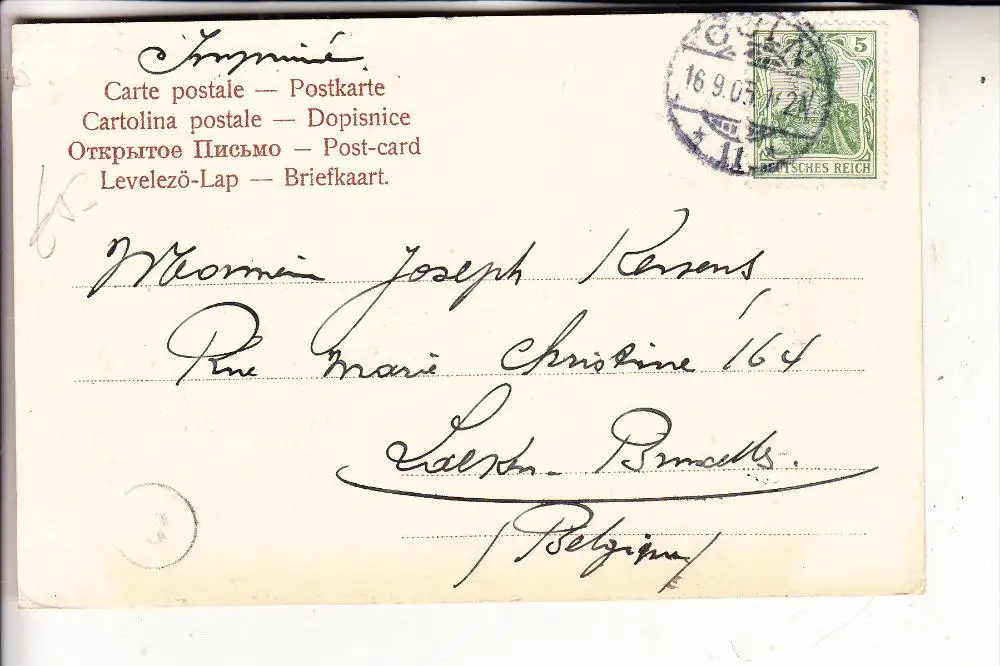 Imprimé.
Carte postale — Postkarte
Cartolina postale — Dopisnice
Открытое Письмо — Post-card
Levelezö-Lap — Briefkaart.
5
DEUTSCHES REICH
CÖLN
16.9.05
* 11 *
Monsieur Joseph Kersens,
Rue Marie Christine 164
Laeken-Bruxelles.
(Belgique)
3